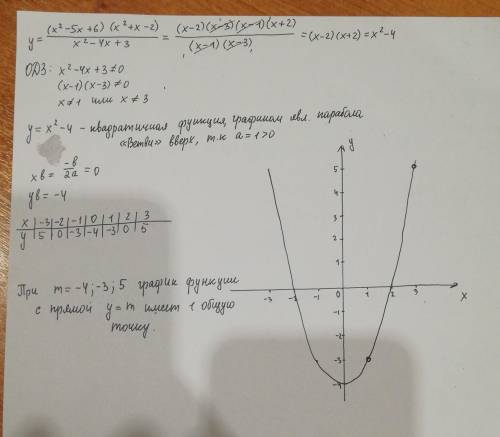 y = (x²-5x+6)(x²+x-2) / x²-4x+3 = (x-2)(x-3)(x-1)(x+2) / (x-1)(x-3) = (x-2)(x+2) = x²-4
ОДЗ: x²-4x+3≠0
(x-1)(x-3)≠0
x≠1 или x≠3
y=x²-4 - квадратичная функция, графиком явл. парабола
«Ветви» вверх, т.к a=1>0
xв = -в/2a = 0
yв = -4
x | -3 | -2 | -1 | 0 | 1 | 2 | 3
y | 5 | 0 | -3 | -4 | -3 | 0 | 5
При m=-4; -3; 5 график функции
с прямой y=m имеет 1 общую
точку.
y
5
4
3
2
1
-3 -2 -1 0 1 2 3 x
-1
-2
-3
-4